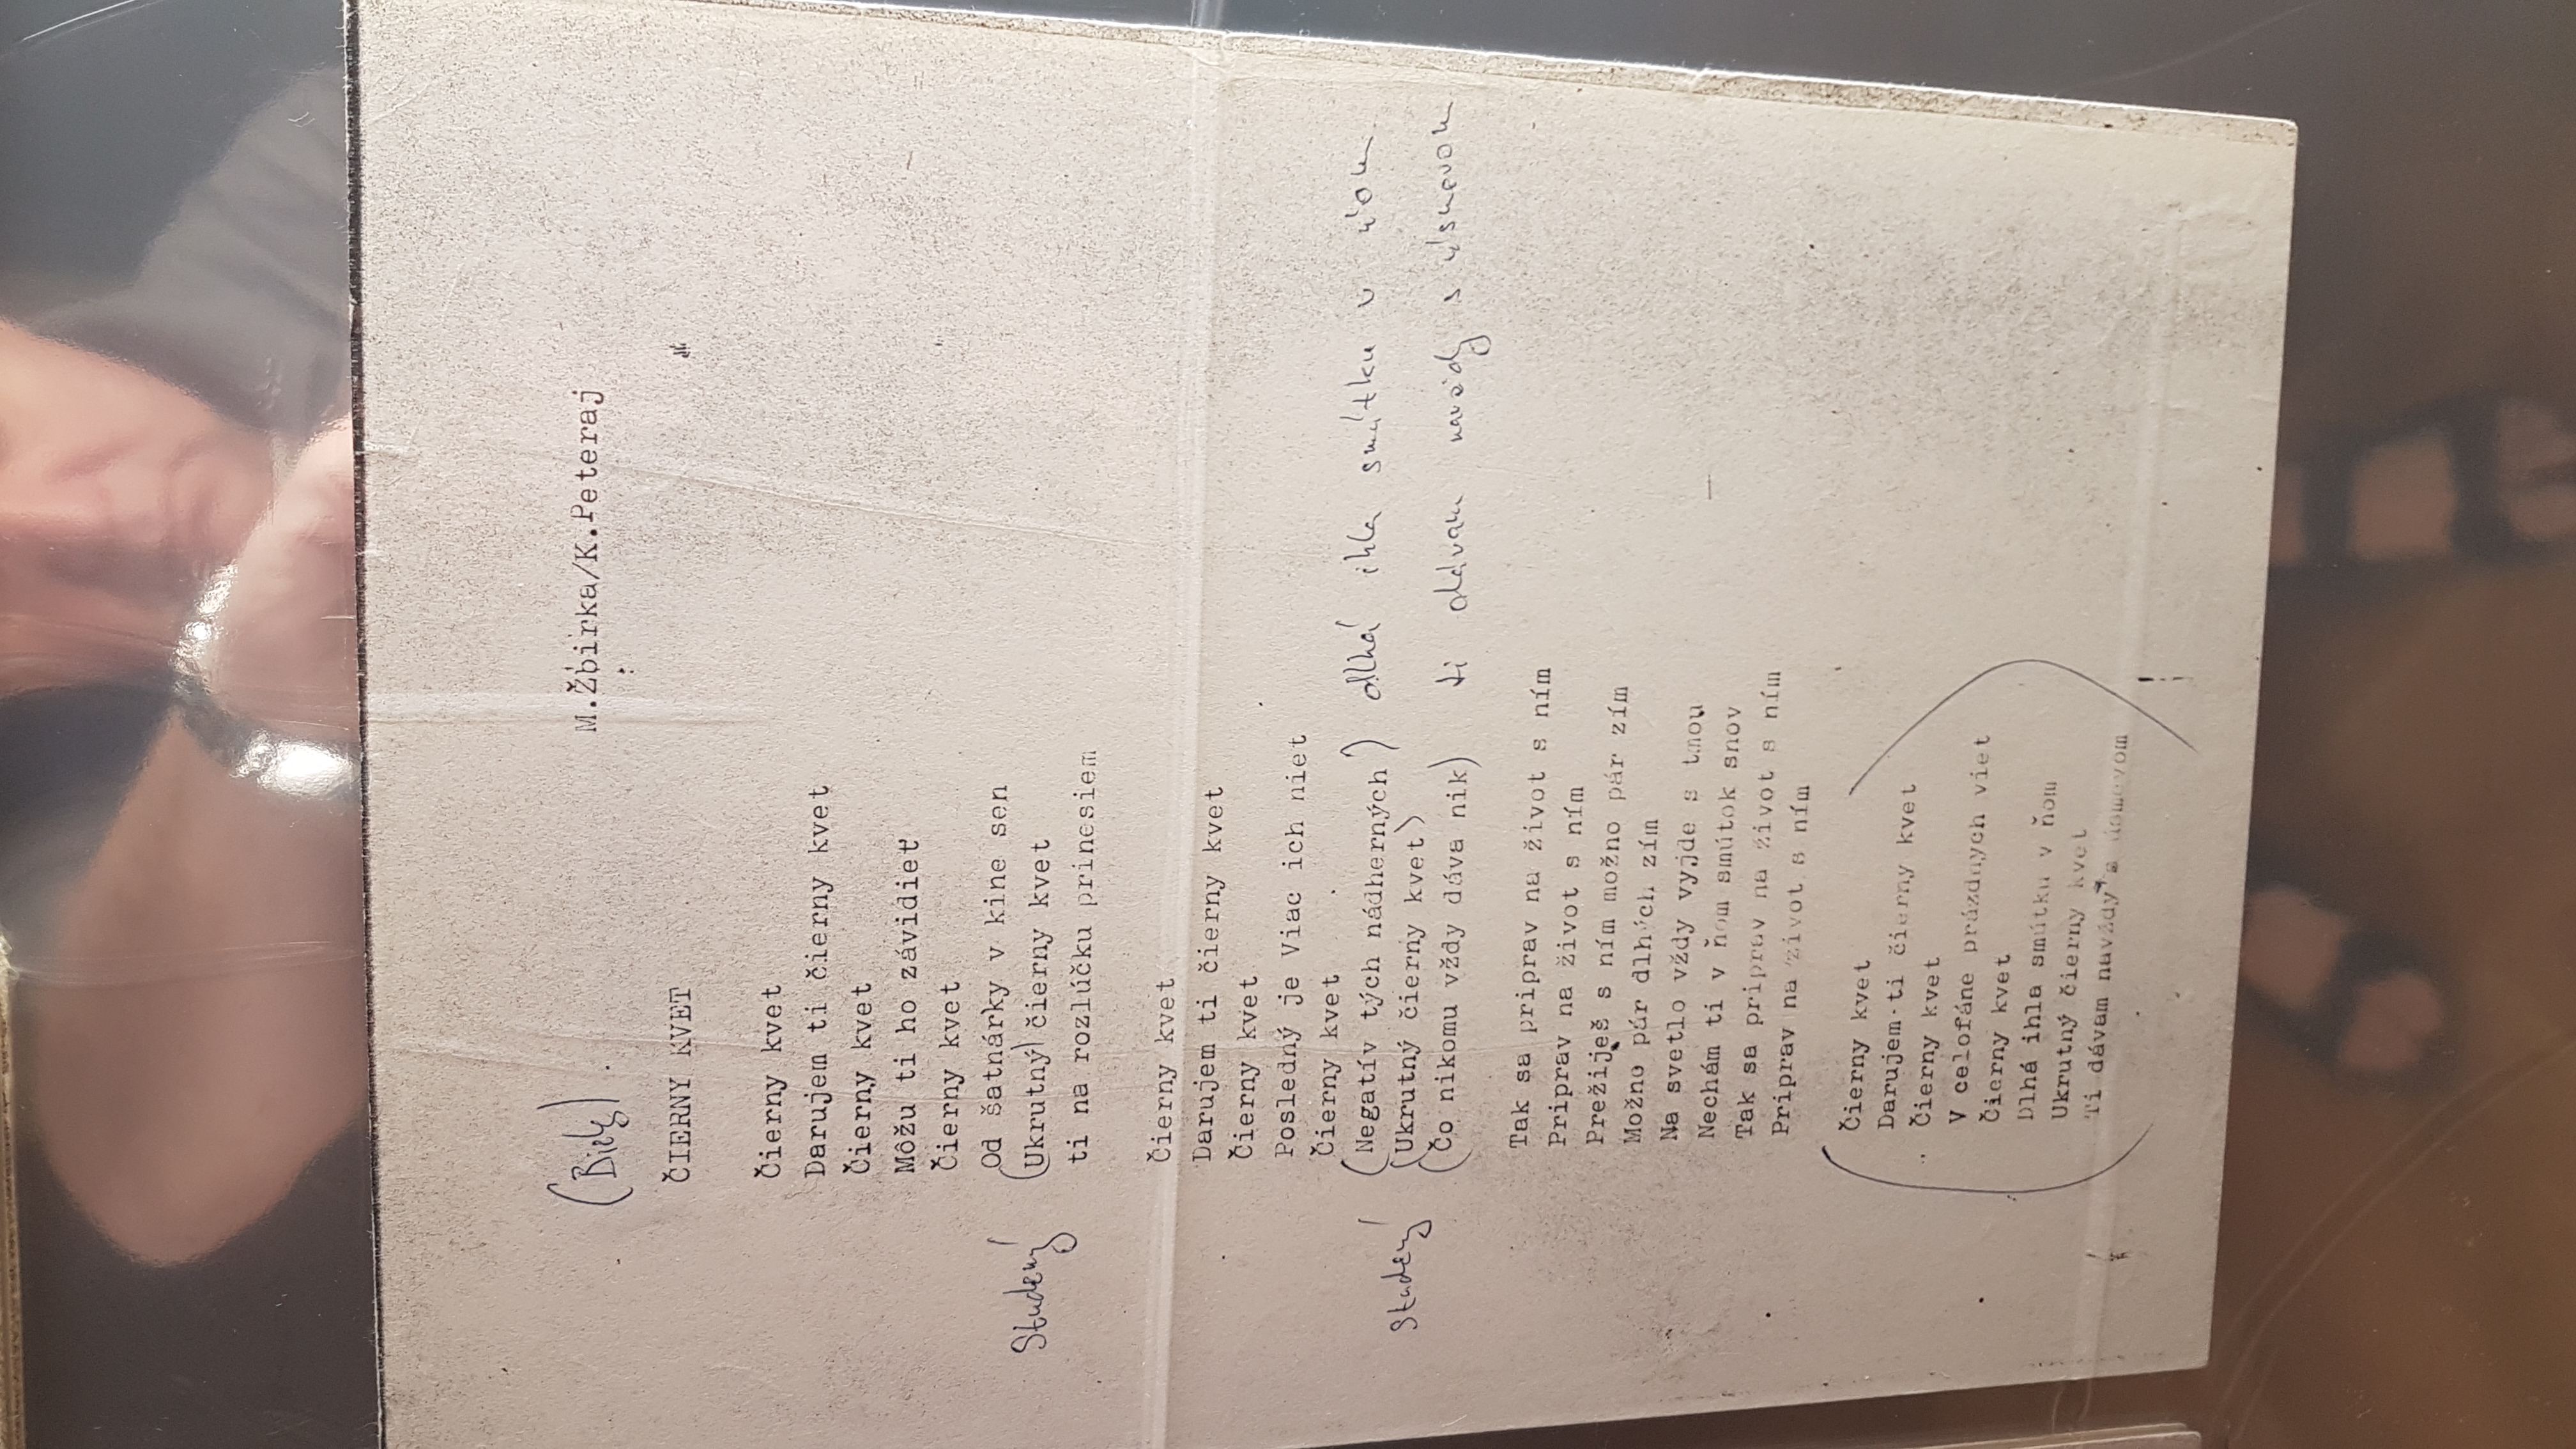 M.Žbirka/K.Peteraj
(Biely)
ČIERNY KVET
Čierny kvet
Darujem ti čierny kvet
Čierny kvet
Môžu ti ho závidieť
Čierny kvet
Od šatnárky v kine sen
Studený (Ukrutný) čierny kvet
ti na rozlúčku prinesiem
Čierny kvet
Darujem ti čierny kvet
Čierny kvet
Posledný je Viac ich niet
Čierny kvet
(Negatív tých nádherných) dlhá ihla smútku v ňom
Studený (Ukrutný čierny kvet)
(Čo nikomu vždy dáva nik) ti dávam navždy s
Tak sa priprav na život s ním
Priprav na život s ním
Prežiješ s ním možno pár zím
Možno pár dlhých zím
Na svetlo vždy vyjde s tmou
Nechám ti v ňom smútok snov
Tak sa priprav na život s ním
Priprav na život s ním
(Čierny kvet
Darujem ti čierny kvet
Čierny kvet
V celofáne prázdnych viet
Čierny kvet
Dlhá ihla smútku v ňom
Ukrutný čierny kvet
Ti dávam navždy s úsmevom)